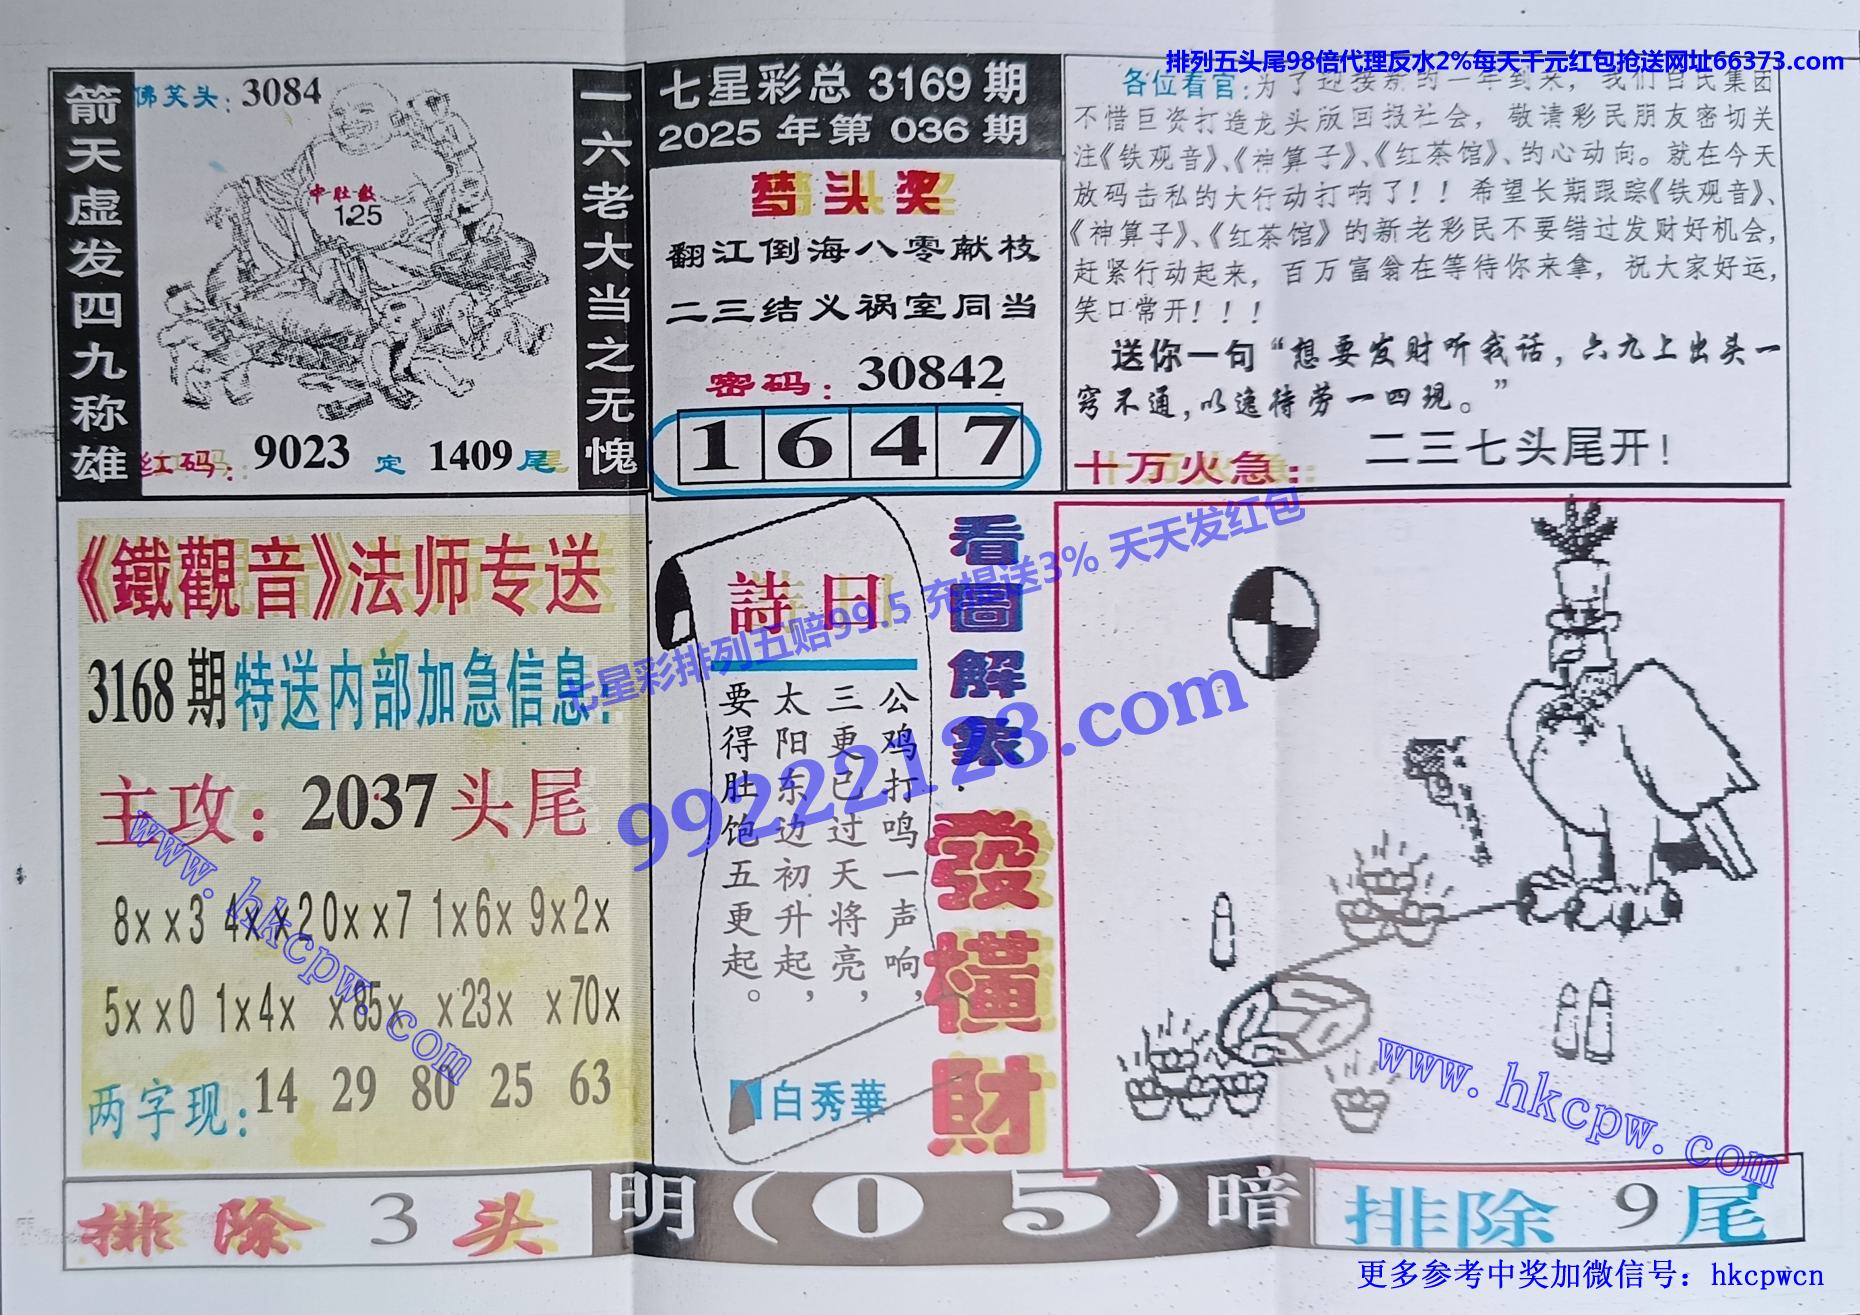 排列五头尾98倍代理反水2%每天千元红包抢送网址66373.com
箭天虚发四九称雄
佛笑头：3084
中肚数
125
红码：9023 定 1409尾
一六老大当之无愧
七星彩总 3169 期
2025 年第 036 期
梦头奖
翻江倒海八零献枝
二三结义祸室同当
密码：30842
1 6 4 7
各位看官：为了迎接新的一年到来，我们白民集团
不惜巨资打造龙头版回报社会，敬请彩民朋友密切关
注《铁观音》、《神算子》、《红茶馆》、的心动向。就在今天
放码击私的大行动打响了！！希望长期跟踪《铁观音》、
《神算子》、《红茶馆》的新老彩民不要错过发财好机会，
赶紧行动起来，百万富翁在等待你来拿，祝大家好运，
笑口常开！！！
送你一句“想要发财听我话，六九上出头一
窍不通，以逸待劳一四现。”
十万火急：二三七头尾开！
《鐵觀音》法师专送
3168期特送内部加急信息：
主攻：2037头尾
8××3 4××2 0××7 1×6× 9×2×
5××0 1×4× ×85× ×23× ×70×
两字现：14 29 80 25 63
詩曰
公鸡打鸣一声响，
三更已过天将亮，
太阳东边初升起，
要得肚饱五更起。
白秀華
看圖解象
發橫財
七星彩排列五赔99.5 充提送3% 天天发红包
99222123.com
www.hkcpw.com
www.hkcpw.com
排除 3 头
明(0 5)暗
排除 9 尾
更多参考中奖加微信号：hkcpwcn